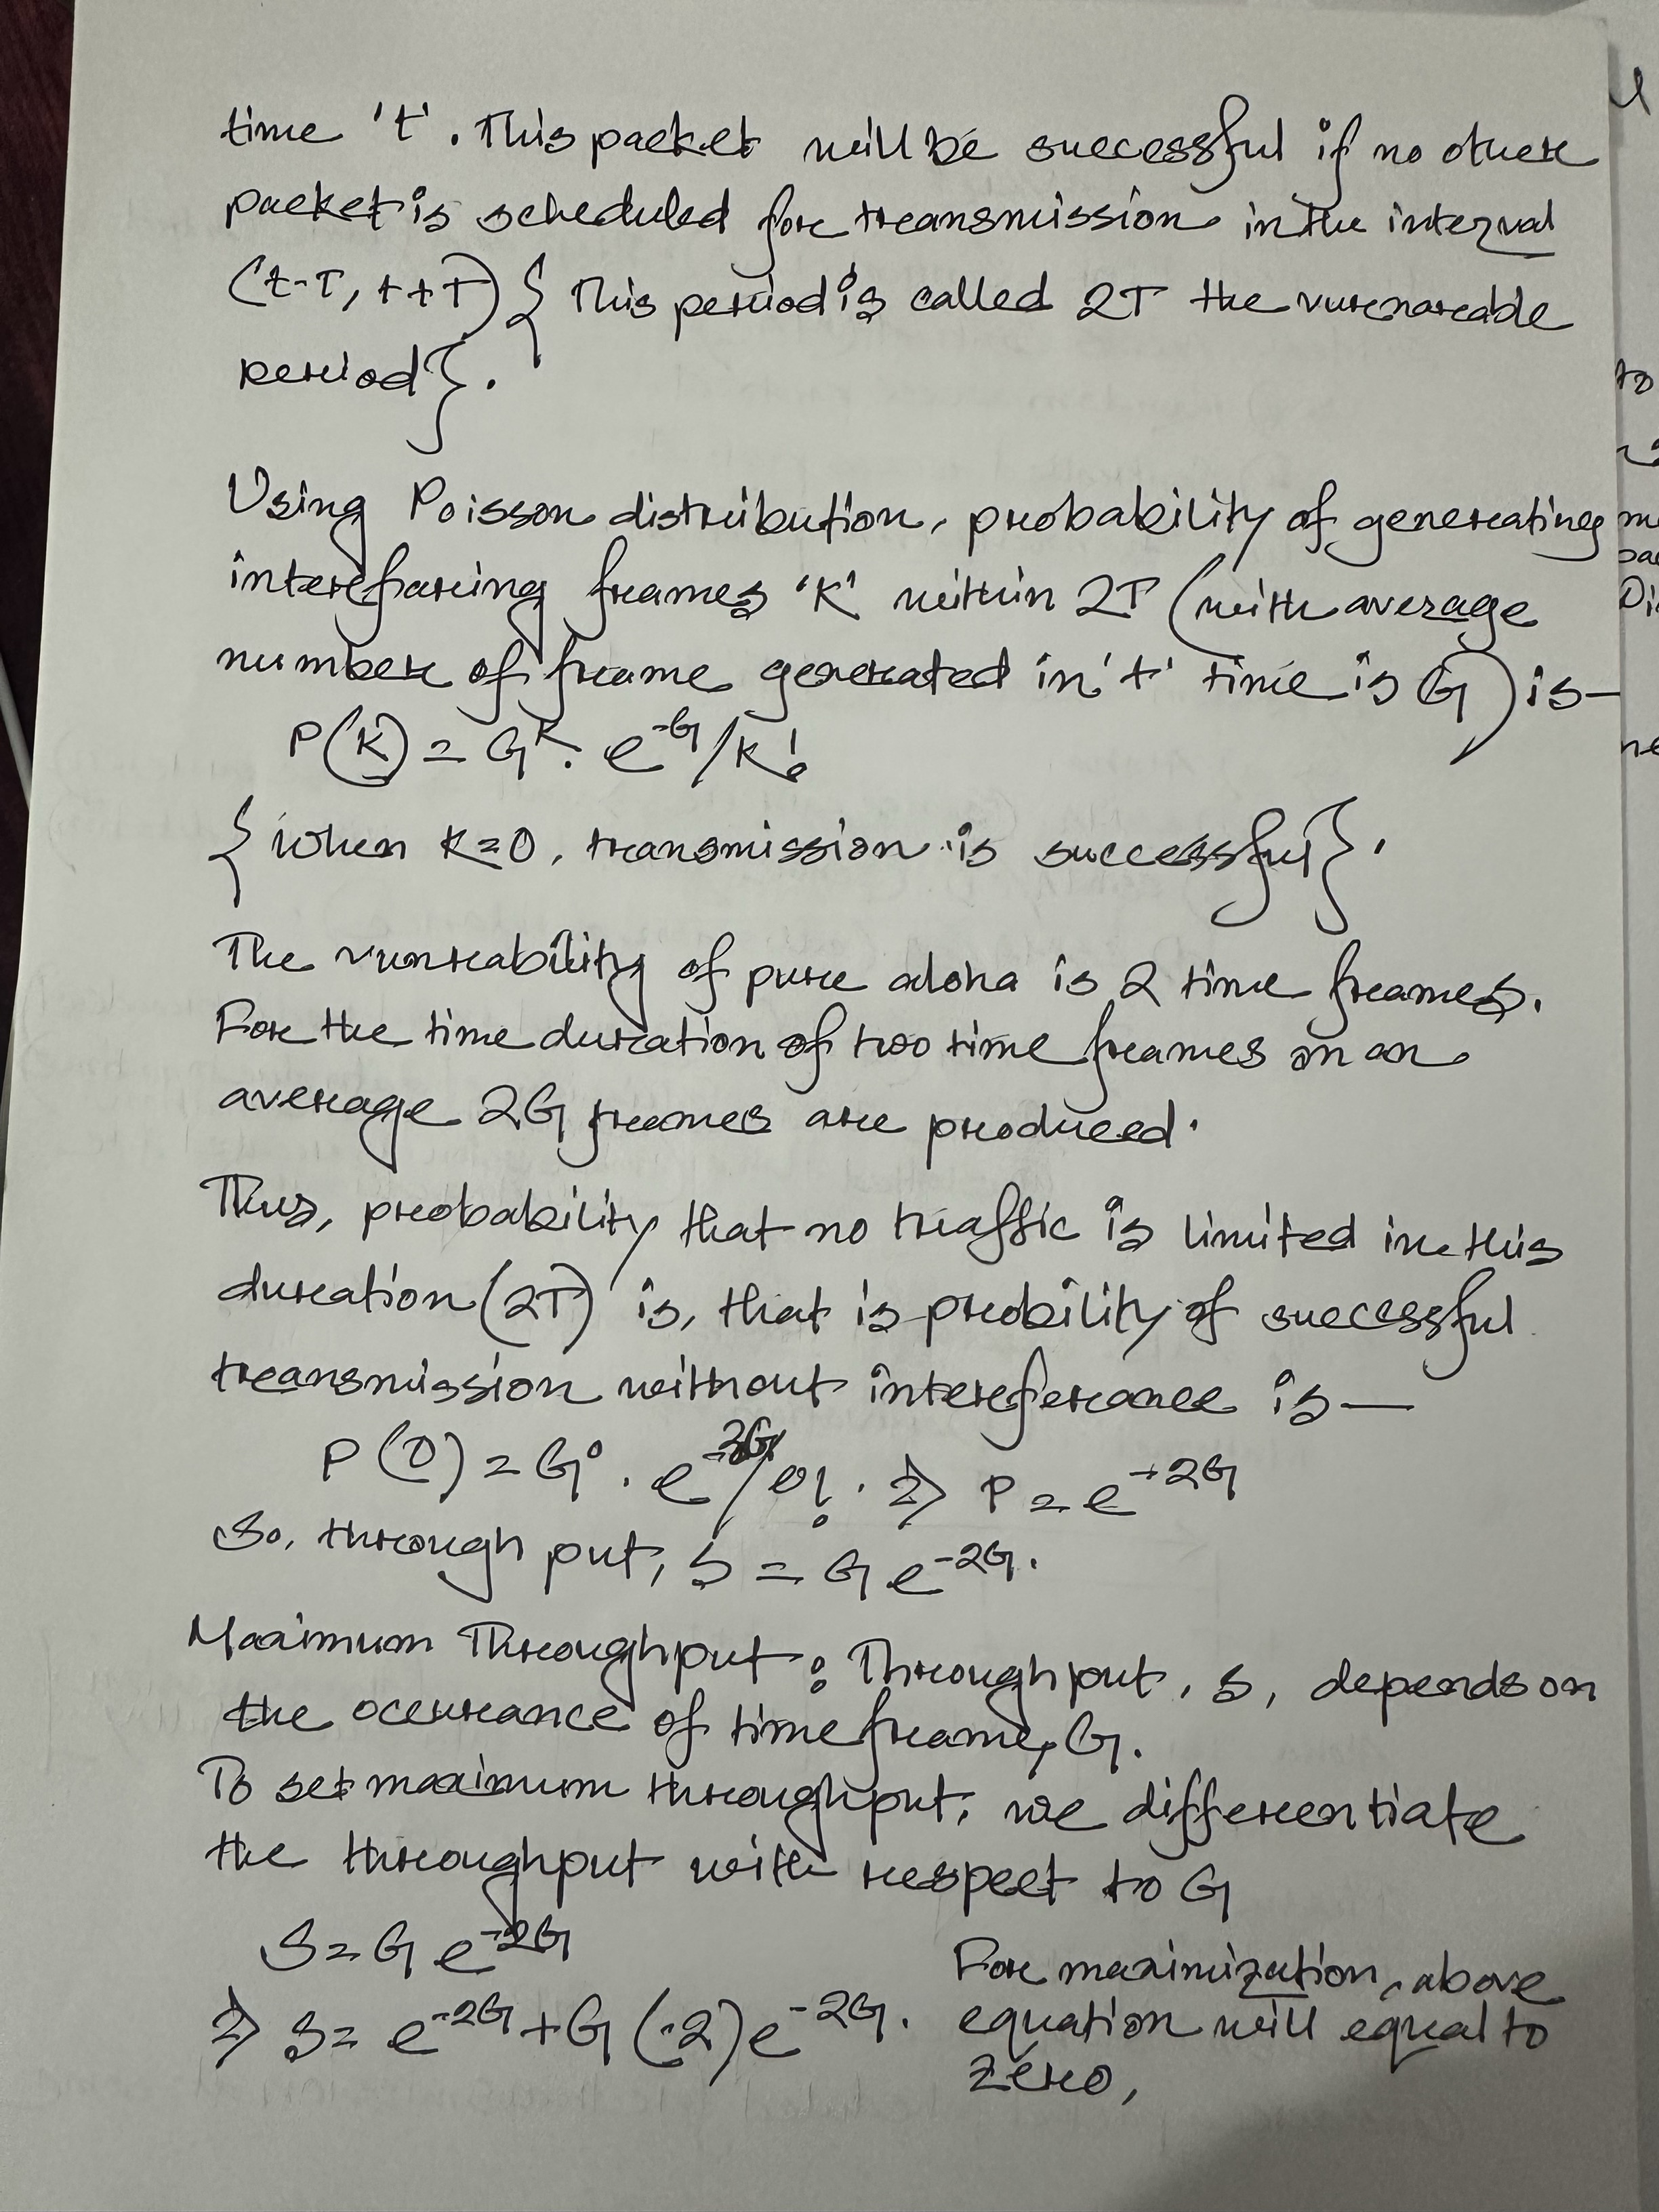 time 't'. This packet will be successful if no other
packet is scheduled for transmission in the interval
(t-T, t+T) { This period is called 2T the vurnarable
period}.
Using Poisson distribution, probability of generating
interfaring frames 'K' within 2T (with average
number of frame generated in 't' time is G) is—
P(K) = G^K. e^-G/K!
{ When K=0, transmission is successful}.
The vunrability of pure aloha is 2 time frames.
For the time duration of two time frames on an
average 2G frames are produced.
Thus, probability that no traffic is limited in this
duration (2T) is, that is probility of successful
transmission without intereference is—
P(0) = G^0 . e^-2G/0! . => P = e^-2G
So, through put, S = G e^-2G.
Maximum Throughput: Throughput, S, depends on
the ocurrance of time frame, G.
To set maximum throughput, we differentiate
the throughput with respect to G
S = G e^-2G
=> S = e^-2G + G (-2) e^-2G.
For maximization, above
equation will equal to
zero,
to